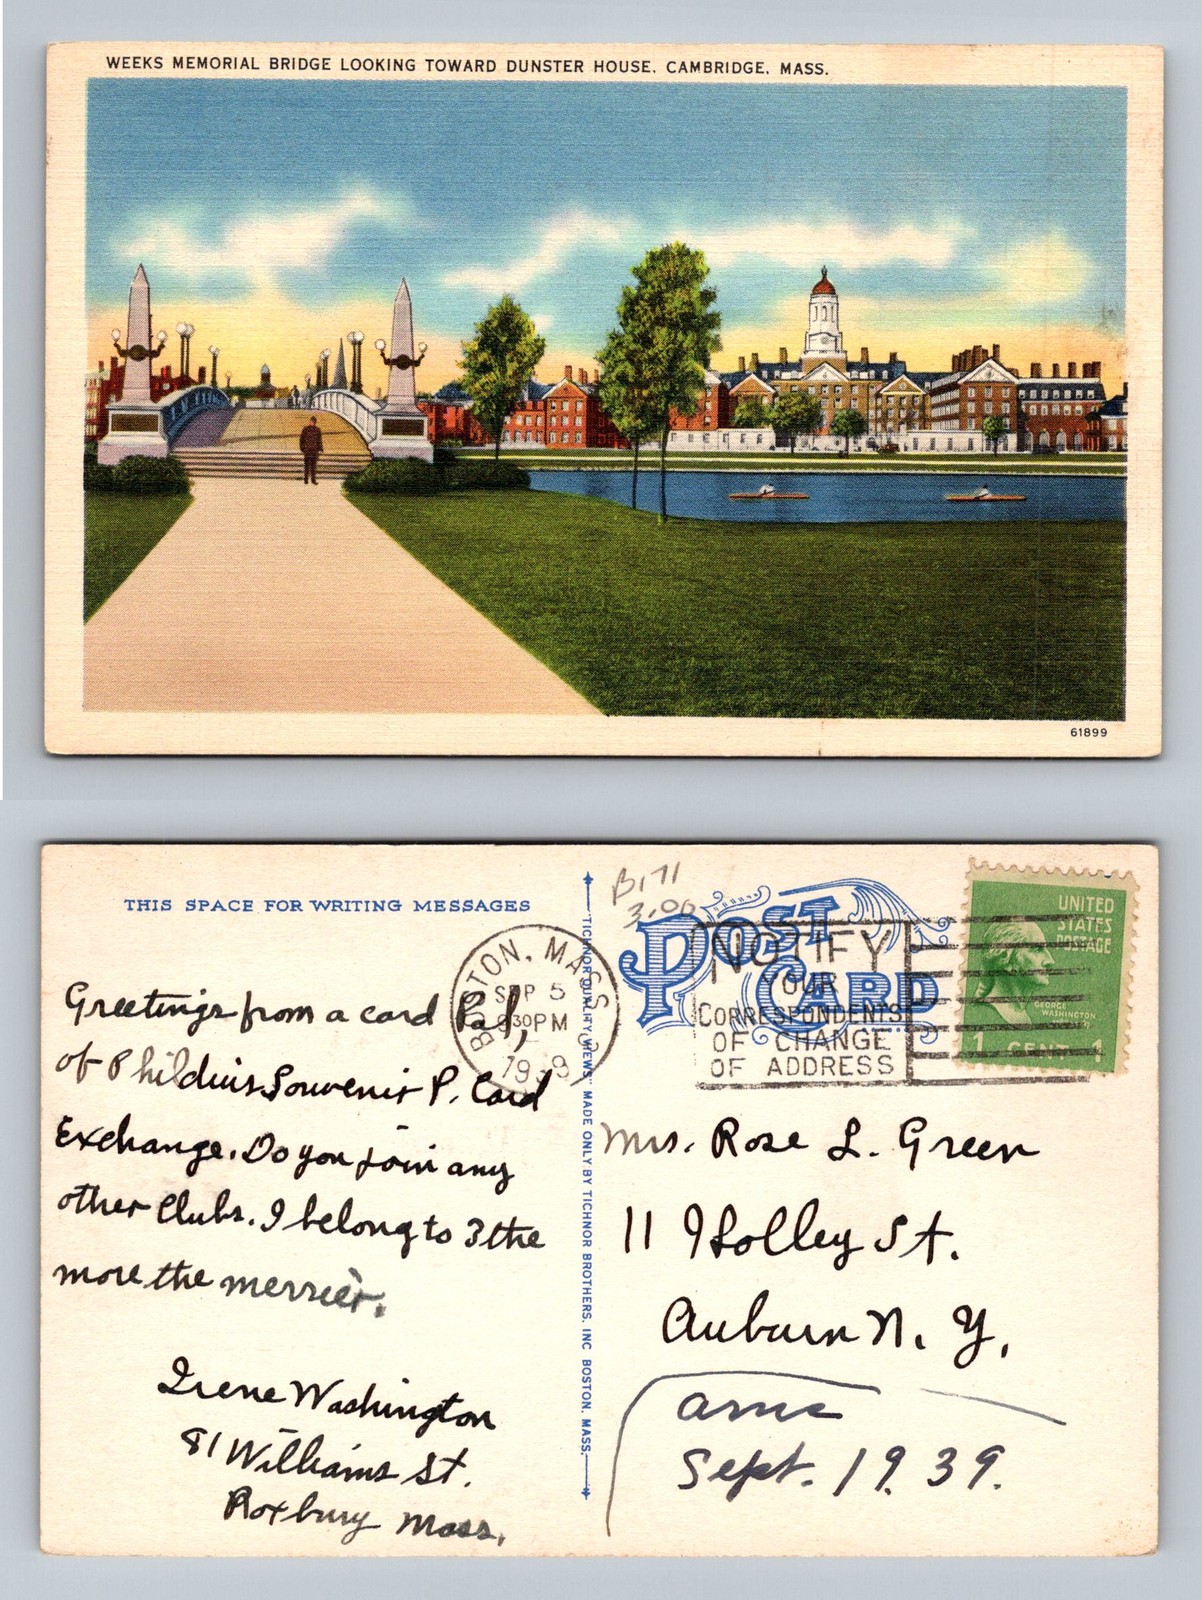 WEEKS MEMORIAL BRIDGE LOOKING TOWARD DUNSTER HOUSE, CAMBRIDGE, MASS.
61899
THIS SPACE FOR WRITING MESSAGES
Greetings from a card Pal,
of Phildius Souvenir P. Card
Exchange. Do you join any
other Clubs. I belong to 3 the
more the merrier.
Irene Washington
81 Williams St.
Roxbury Mass.
"TICHNOR QUALITY VIEWS" MADE ONLY BY TICHNOR BROTHERS, INC BOSTON, MASS.
B171
3.00
POST
CARD
BOSTON, MASS
SEP 5
930PM
NOTIFY
YOUR
CORRESPONDENTS
OF CHANGE
OF ADDRESS
UNITED
STATES
POSTAGE
GEORGE
WASHINGTON
1 CENT 1
Mrs. Rose L. Green
11 Holley St.
Auburn N. Y.
Sept. 1939.